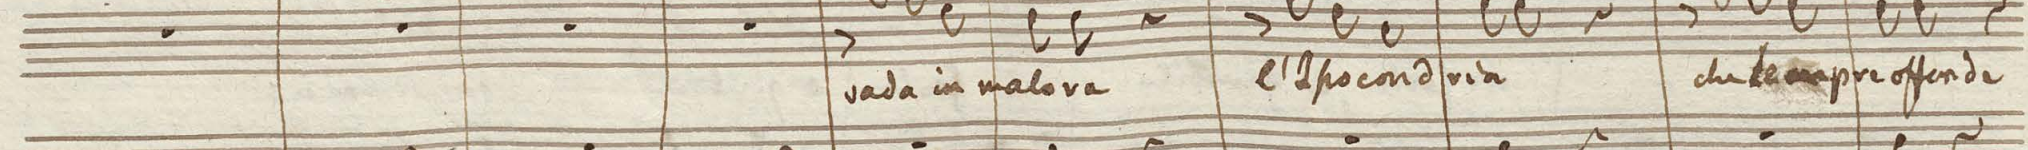 vada in malora l'Ipocondria che sempre offende